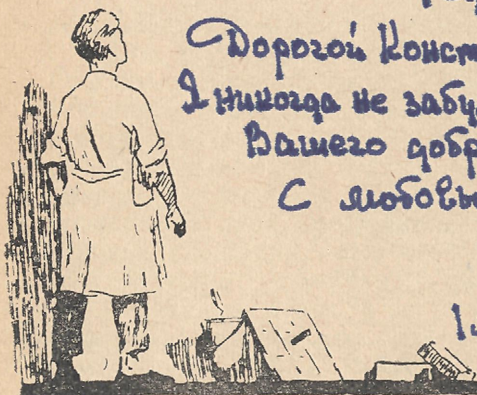 Дорогой Конст
Я никогда не забу
Вашего добр
С любовью
1.